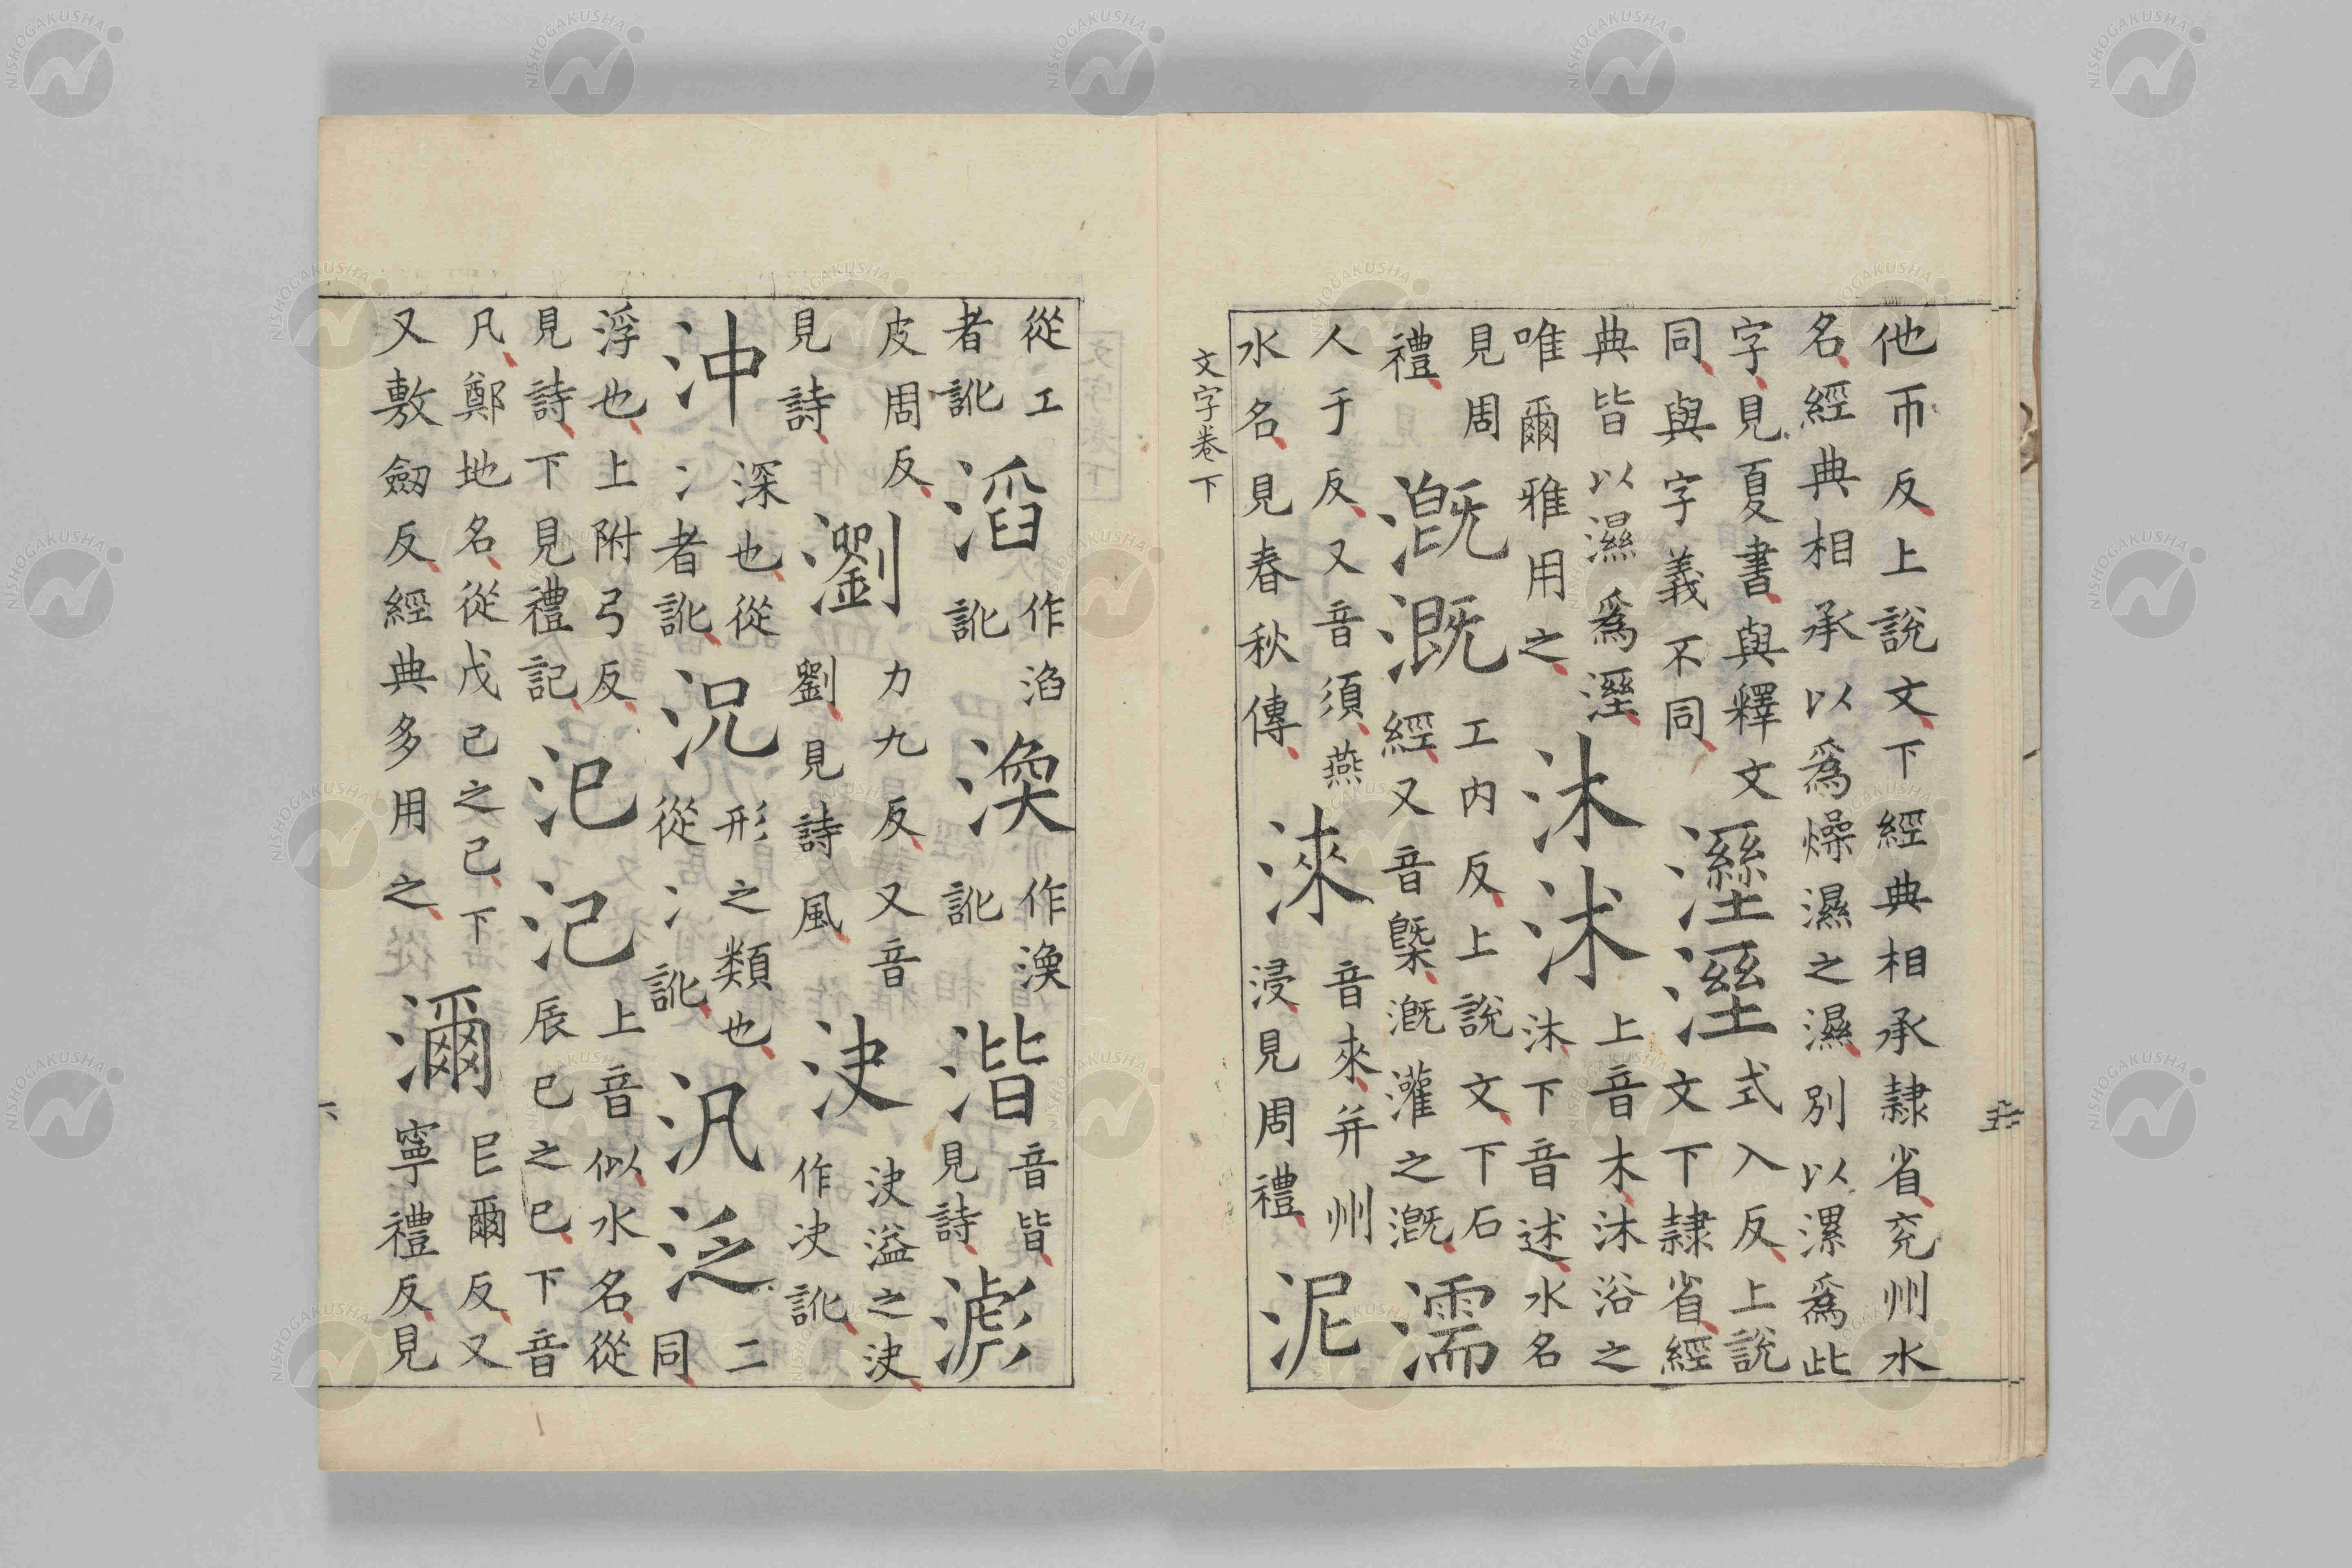 他帀反上說文下經典相承隷省兖州水
名經典相承以爲燥濕之濕別以漯爲此
字見夏書與釋文
同與字義不同
溼
式入反上說
文下隷省經
典皆以濕爲溼
唯爾雅用之
沐沭
上音木沐浴之
沐下音述水名
見周
禮
漑溉
工内反上說文下石
經又音槩漑灌之漑
濡
人于反又音須燕
水名見春秋傳
淶
音來并州
浸見周禮
泥
文字卷下
五
從工
者訛
滔
作淊
訛
渙
作渙
訛
湝
音皆
見詩
滮
皮周反
見詩
瀏
力九反又音
劉見詩風
決
決溢之決
作决訛
沖
深也從
冫者訛
況
形之類也
從冫訛
汎泛
二
同
浮也上附弓反
見詩下見禮記
汜氾
上音似水名從
辰巳之巳下音
凡鄭地名從戊己之己下
又敷劒反經典多用之
瀰
㠯爾反又
寧禮反見
六
NISHOGAKUSHA